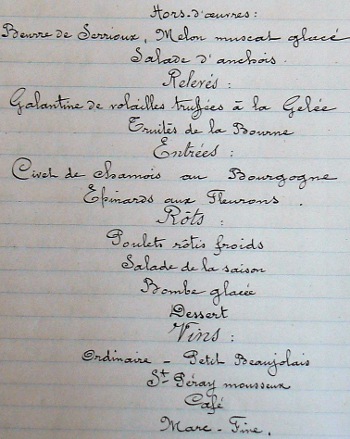 Hors-d'œuvres :
Beurre de Serrioux, Melon muscat glacé
Salade d'anchois.
Relevés :
Galantine de volailles truffées à la Gelée
Truites de la Bourne
Entrées :
Civet de chamois au Bourgogne
Epinards aux Fleurons.
Rôts :
Poulets rôtis froids
Salade de la saison
Bombe glacée
Dessert
Vins :
Ordinaire - Petit Beaujolais
St Péray mousseux
Café
Marc - Fine.